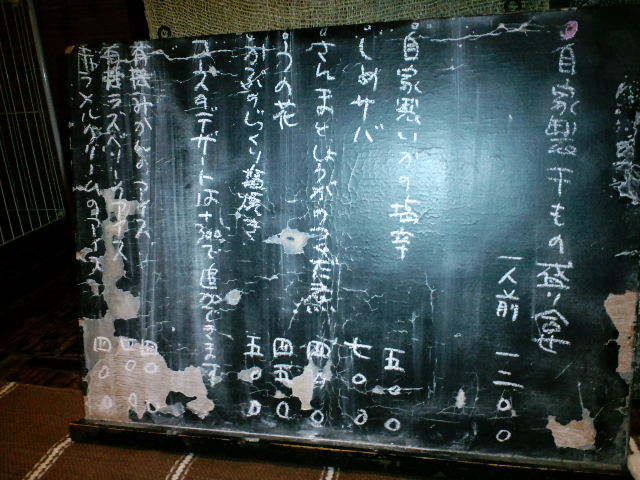 自家製干もの盛り合せ
一人前 一二〇〇
自家製いかの塩辛 五〇〇
しめサバ 七〇〇
さんまとしょうがの
うの花 四五〇
かぶのじっくり塩焼き 五〇〇
デザートは+300で追加できます
有機みかんのアイス 四〇〇
有機ラズベリーアイス 四〇〇
キャラメルクリームのアイス 四〇〇